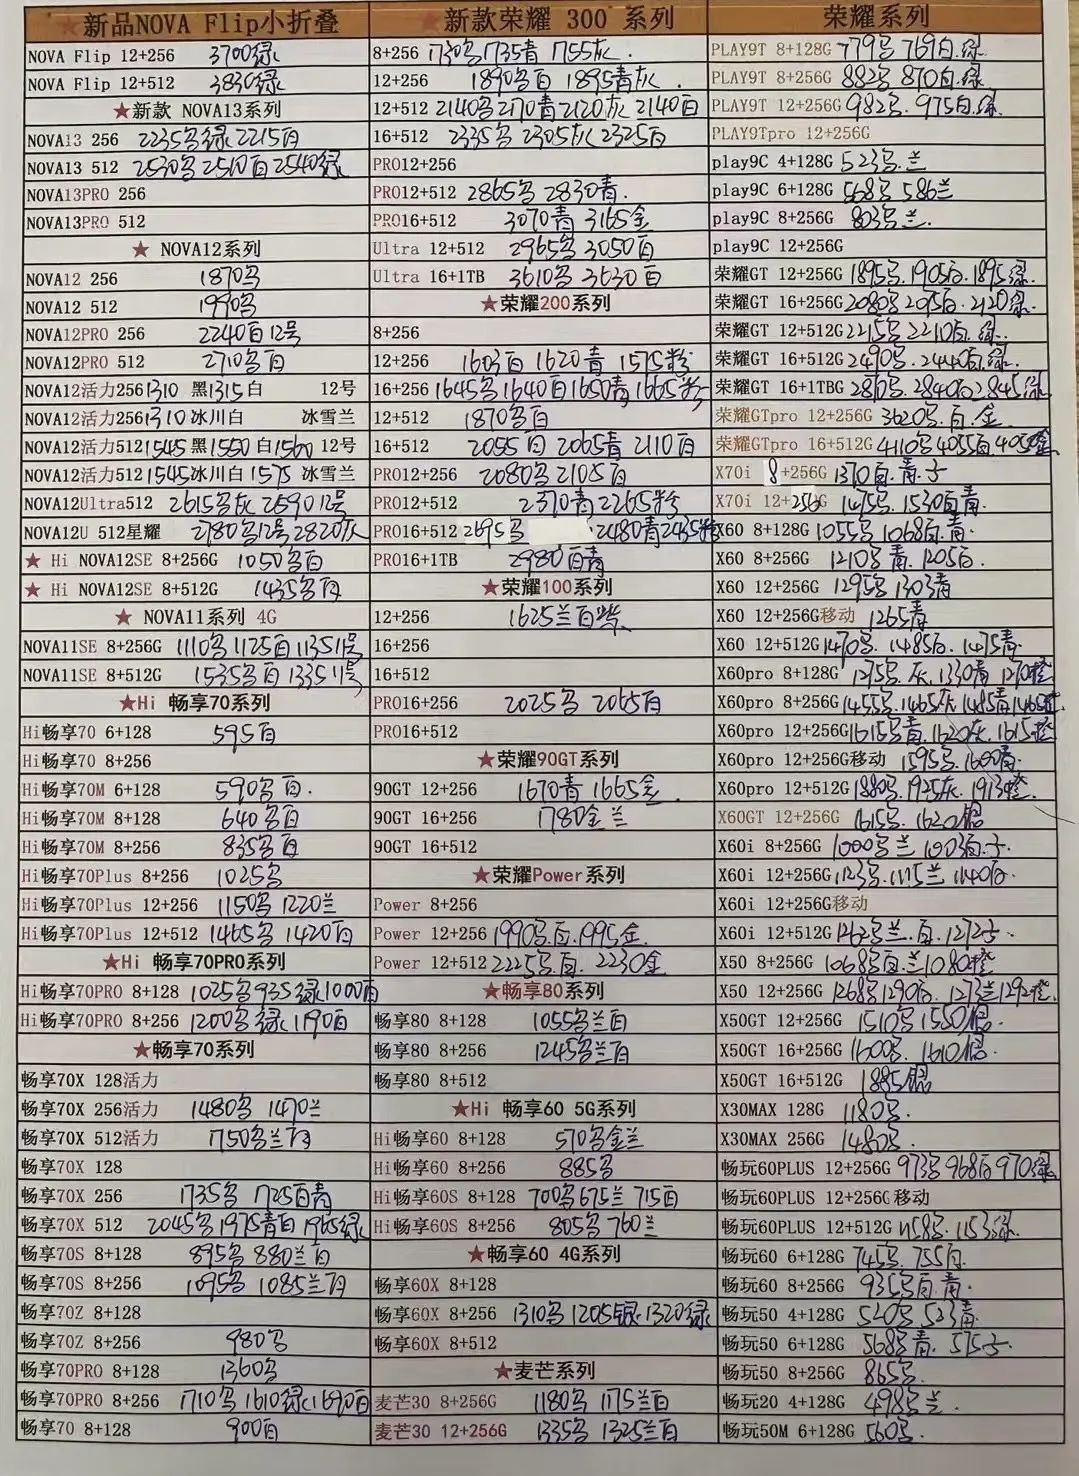 ★新品NOVA Flip小折叠
NOVA Flip 12+256 3700绿
NOVA Flip 12+512 3830绿
★新款 NOVA13系列
NOVA13 256 2235鸟绿 2215百
NOVA13 512 2530鸟 2510百 2540绿
NOVA13PRO 256
NOVA13PRO 512
★ NOVA12系列
NOVA12 256 1870鸟
NOVA12 512 1990鸟
NOVA12PRO 256 2240百12号
NOVA12PRO 512 2710鸟百
NOVA12活力256 1310 黑1315白 12号
NOVA12活力256 1310冰川白 冰雪兰
NOVA12活力512 1545黑1550白1560 12号
NOVA12活力512 1545冰川白 1575 冰雪兰
NOVA12Ultra512 2615鸟灰 2590 12号
NOVA12U 512星耀 2780鸟12号2820灰
★ Hi NOVA12SE 8+256G 1050鸟百
★ Hi NOVA12SE 8+512G 1435鸟百
★ NOVA11系列 4G
NOVA11SE 8+256G 1110鸟 1125百 1135 11号
NOVA11SE 8+512G 1535鸟百 1335 11号
★Hi 畅享70系列
Hi畅享70 6+128 595百
Hi畅享70 8+256
Hi畅享70M 6+128 590鸟百.
Hi畅享70M 8+128 640鸟百
Hi畅享70M 8+256 835鸟百
Hi畅享70Plus 8+256 1025鸟
Hi畅享70Plus 12+256 1150鸟 1220兰
Hi畅享70Plus 12+512 1465鸟 1420百
★Hi 畅享70PRO系列
Hi畅享70PRO 8+128 1025鸟935绿1000百
Hi畅享70PRO 8+256 1200鸟绿 1190百
★畅享70系列
畅享70X 128活力
畅享70X 256活力 1480鸟 1470兰
畅享70X 512活力 1750鸟兰百
畅享70X 128
畅享70X 256 1735鸟 1725百青
畅享70X 512 2045鸟1975青百 1965绿
畅享70S 8+128 895鸟 880兰百
畅享70S 8+256 1095鸟 1085兰百
畅享70Z 8+128
畅享70Z 8+256 980鸟
畅享70PRO 8+128 1360鸟
畅享70PRO 8+256 1710鸟 1610绿 1690百
畅享70 8+128 900百
★新款荣耀 300 系列
8+256 1730鸟1735青 1755灰.
12+256 1890鸟百 1895青灰
12+512 2140鸟2170青2120灰 2140百
16+512 2335鸟 2305灰 2325百
PRO12+256
PRO12+512 2865鸟 2830青.
PRO16+512 3070青 3165金
Ultra 12+512 2965鸟3050百
Ultra 16+1TB 3610鸟 3630百
★荣耀200系列
8+256
12+256 1603百 1620青 1575粉
16+256 1645鸟1640百1650青1665粉
12+512 1870鸟百
16+512 2055百 2065青 2110百
PRO12+256 2080鸟2105百
PRO12+512 2370青2265粉
PRO16+512 2695鸟 2480青2435粉
PRO16+1TB 2980百青
★荣耀100系列
12+256 1625兰百紫
16+256
16+512
PRO16+256 2025鸟 2065百
PRO16+512
★荣耀90GT系列
90GT 12+256 1670青 1665金.
90GT 16+256 1780金兰
90GT 16+512
★荣耀Power系列
Power 8+256
Power 12+256 1990鸟百.1995金.
Power 12+512 2225鸟百. 2230金
★畅享80系列
畅享80 8+128 1055鸟兰百
畅享80 8+256 1245鸟兰百
畅享80 8+512
★Hi 畅享60 5G系列
Hi畅享60 8+128 570鸟金兰
Hi畅享60 8+256 885鸟
Hi畅享60S 8+128 700鸟675兰 715百
Hi畅享60S 8+256 805鸟760兰
★畅享60 4G系列
畅享60X 8+128
畅享60X 8+256 1310鸟 1205银.1320绿
畅享60X 8+512
★麦芒系列
麦芒30 8+256G 1180鸟 1175兰百
麦芒30 12+256G 1335鸟 1325兰百
荣耀系列
PLAY9T 8+128G 779鸟 769百.绿
PLAY9T 8+256G 882鸟 870百.绿
PLAY9T 12+256G 982鸟.975百.绿.
PLAY9Tpro 12+256G
play9C 4+128G 523鸟.兰
play9C 6+128G 568鸟 586兰
play9C 8+256G 803鸟兰.
play9C 12+256G
荣耀GT 12+256G 1895鸟.1905百.1895绿
荣耀GT 16+256G 2080鸟2095百.2120绿.
荣耀GT 12+512G 2215鸟 2210百.绿.
荣耀GT 16+512G 2490鸟.2440百.绿.
荣耀GT 16+1TBG 2810鸟.2840百2845绿
荣耀GTpro 12+256G 3620鸟.百.金.
荣耀GTpro 16+512G 4110鸟4055百405金
X70i 8+256G 1370百.青.子
X70i 12+256G 1475鸟.1530百青
X60 8+128G 1055鸟1068百.青.
X60 8+256G 1210鸟青.1205百.
X60 12+256G 1295鸟 1303青
X60 12+256G移动 1265青
X60 12+512G 1470鸟.1485百.1475青
X60pro 8+128G 1275鸟.灰.1330青 1270橙
X60pro 8+256G 1455鸟.1465灰1485青1465橙
X60pro 12+256G 1615鸟青.1620灰.1615橙
X60pro 12+256G移动 1595鸟.1600青.
X60pro 12+512G 1880鸟.1925灰.1913橙.
X60GT 12+256G 1615鸟.1620银
X60i 8+256G 1000鸟兰 1003百.子.
X60i 12+256G 1123鸟.1175兰1140百.
X60i 12+256G移动
X60i 12+512G 1262鸟兰.百.1272子.
X50 8+256G 1068鸟百.兰1080橙
X50 12+256G 1268鸟1290百.1273兰1292橙.
X50GT 12+256G 1510鸟 1550银.
X50GT 16+256G 1600鸟.1610银.
X50GT 16+512G 1885银
X30MAX 128G 1180鸟.
X30MAX 256G 1480鸟.
畅玩60PLUS 12+256G 973鸟968百970绿
畅玩60PLUS 12+256G移动
畅玩60PLUS 12+512G 1158鸟.1153绿.
畅玩60 6+128G 745鸟.755百.
畅玩60 8+256G 935鸟百.青.
畅玩50 4+128G 520鸟 523青
畅玩50 6+128G 568鸟青.575子.
畅玩50 8+256G 865鸟.
畅玩20 4+128G 498鸟兰.
畅玩50M 6+128G 560鸟.